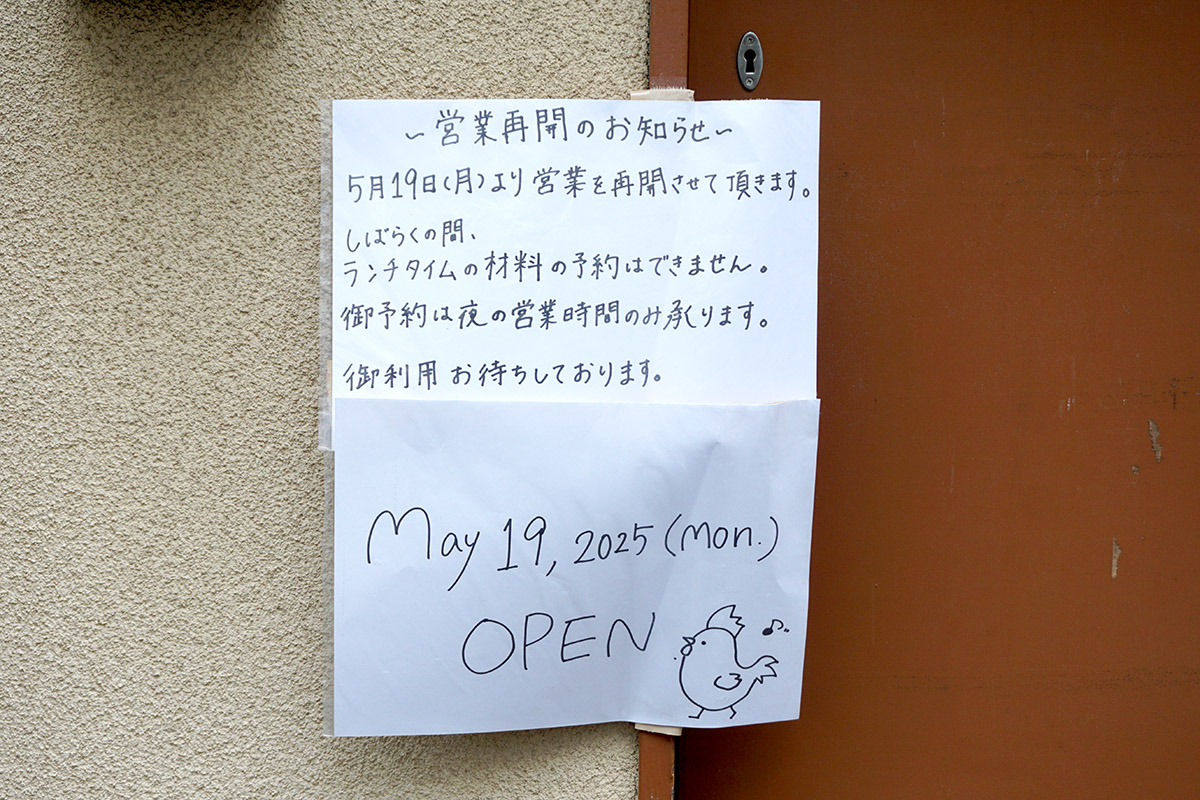 ~営業再開のお知らせ~
5月19日(月)より営業を再開させて頂きます。
しばらくの間、
ランチタイムの材料の予約はできません。
御予約は夜の営業時間のみ承ります。
御利用お待ちしております。
May 19, 2025 (Mon.)
OPEN